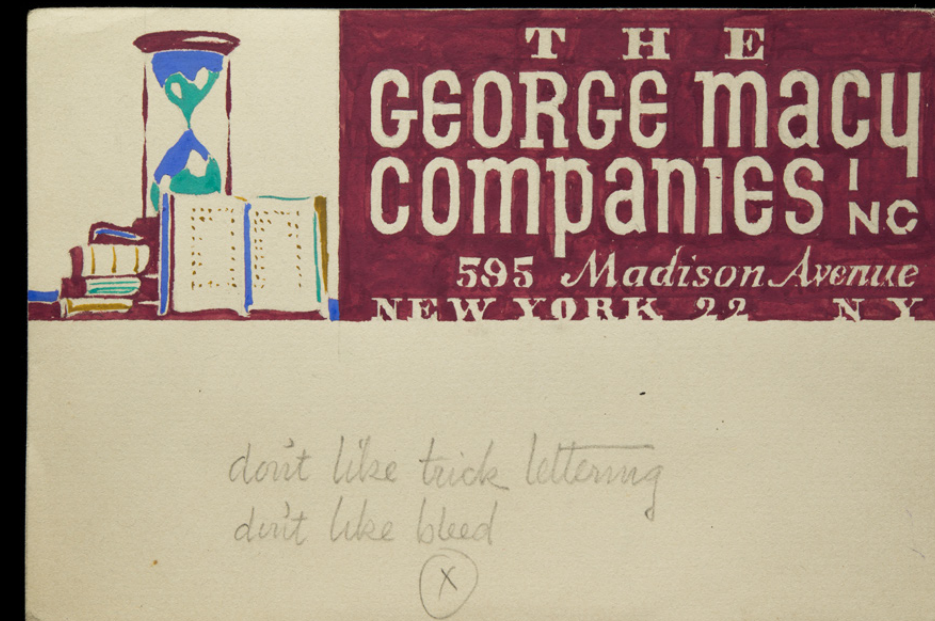 THE
GEORGE macy
companies INC
595 Madison Avenue
NEW YORK 22 N Y
don't like trick lettering
don't like bleed
X